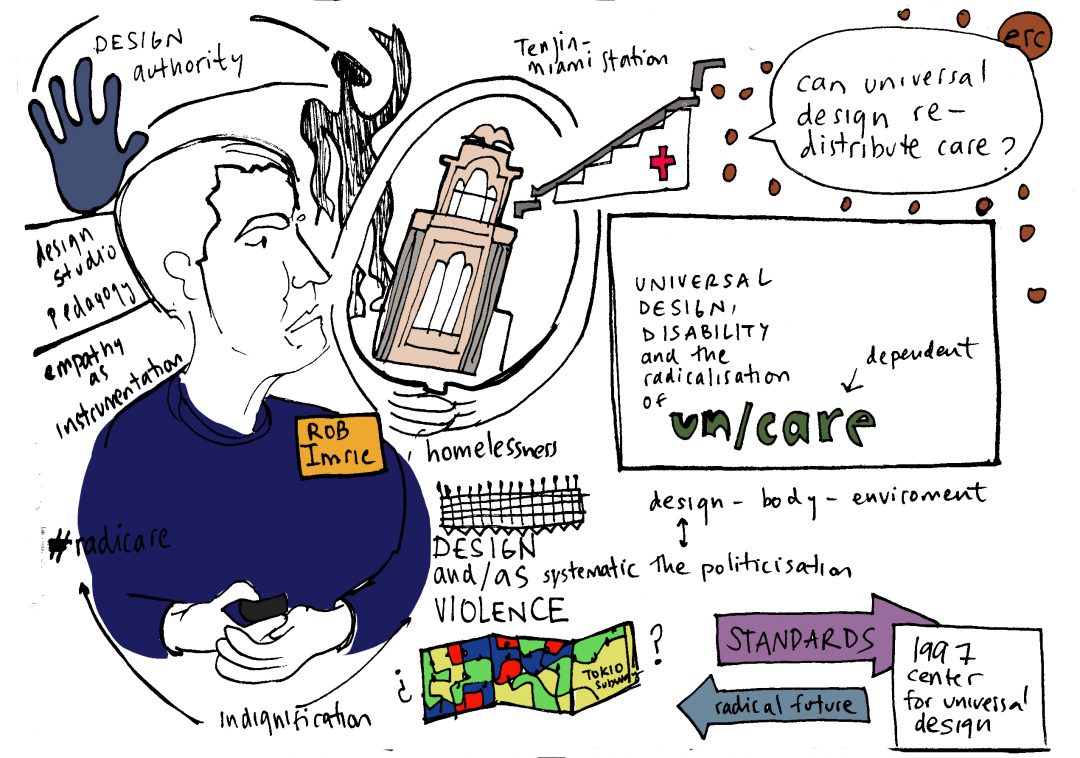 DESIGN
authority
Tenjin-
miami station
erc
can universal
design re-
distribute care?
design
studio
pedagogy
empathy
as
instrumentation
UNIVERSAL
DESIGN,
DISABILITY
and the
radicalisation
OF
un/care
dependent
ROB
Imrie
homelessness
#radicare
design - body - enviroment
DESIGN
and/as systematic the politicisation
VIOLENCE
¿
TOKIO
subway
?
indignification
STANDARDS
radical future
1997
center
for universal
design